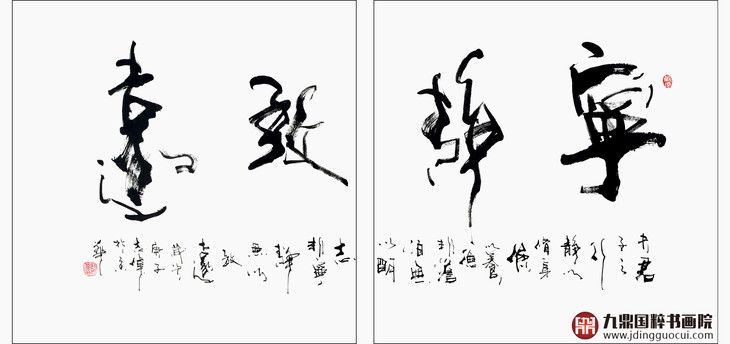 寧靜致遠
夫君
子之
行
靜以
脩身
儉
以養
德
非澹
泊無
以明
志
非寧
靜
無以
致
遠
歲次
庚子
於京
華
九鼎国粹书画院
www.jdingguocui.com